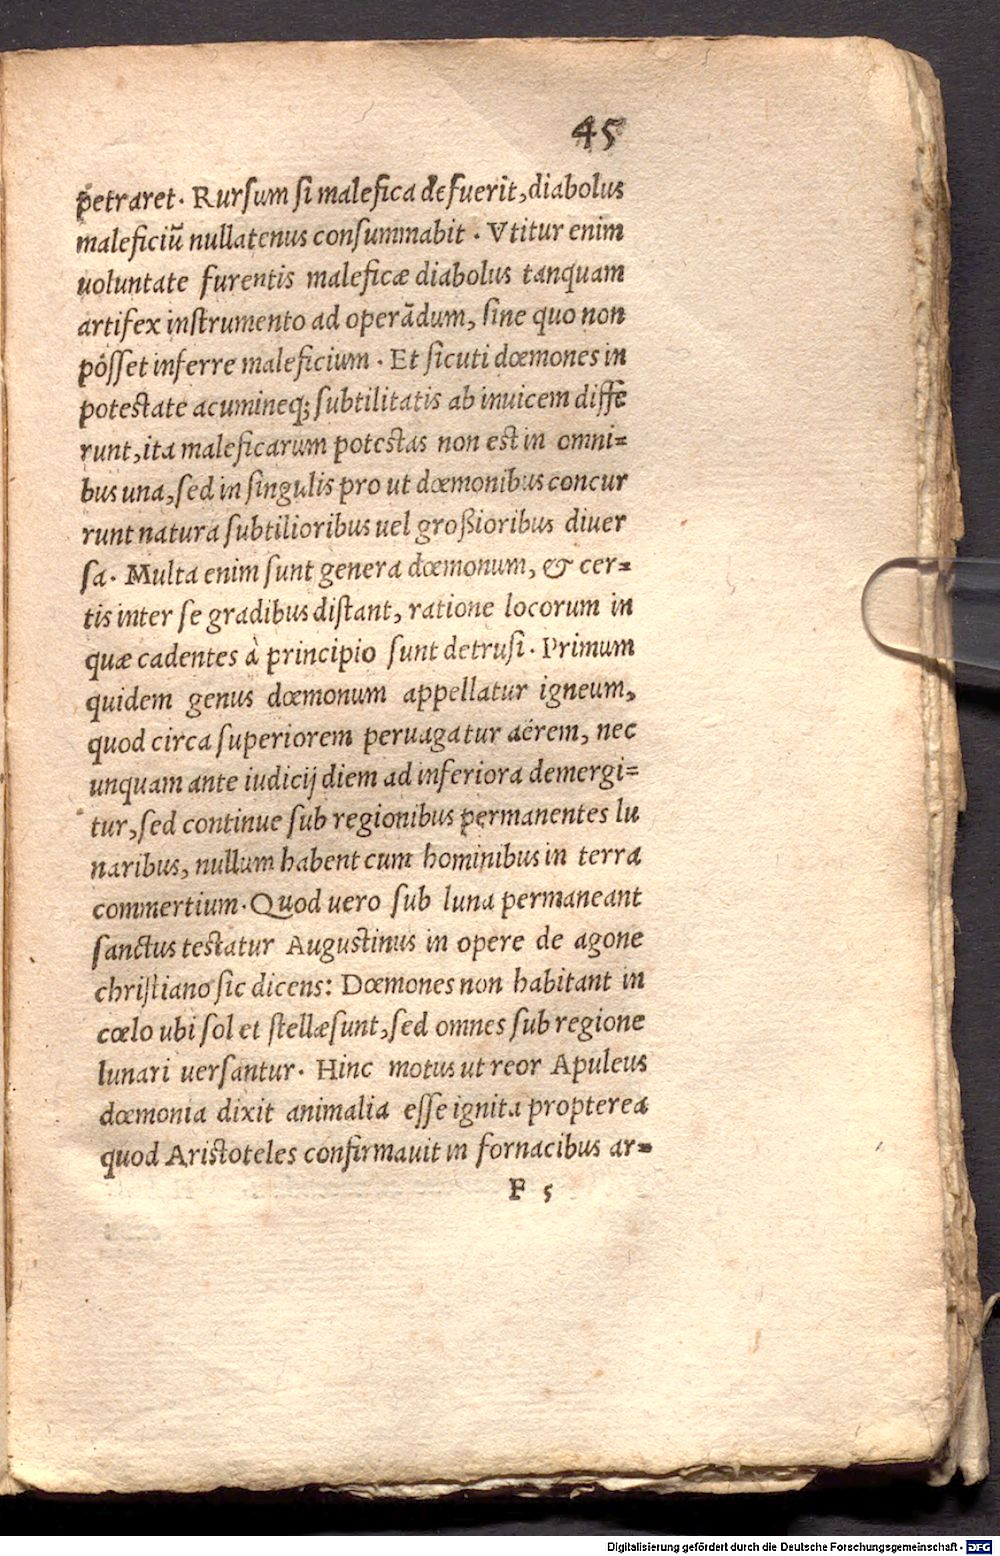 45
petraret. Rurſum ſi malefica defuerit, diabolus
maleficiũ nullatenus conſummabit. Vtitur enim
uoluntate furentis maleficæ diabolus tanquam
artifex inſtrumento ad operãdum, ſine quo non
poſſet inferre maleficium. Et ſicuti dœmones in
poteſtate acumineq; ſubtilitatis ab inuicem diffe
runt, ita maleficarum poteſtas non eſt in omni=
bus una, ſed in ſingulis pro ut dœmonibus concur
runt natura ſubtilioribus uel großioribus diuer
ſa. Multa enim ſunt genera dœmonum, & cer=
tis inter ſe gradibus diſtant, ratione locorum in
quæ cadentes à principio ſunt detruſi. Primum
quidem genus dœmonum appellatur igneum,
quod circa ſuperiorem peruagatur aërem, nec
unquam ante iudicij diem ad inferiora demergi=
tur, ſed continue ſub regionibus permanentes lu
naribus, nullum habent cum hominibus in terra
commertium. Quod uero ſub luna permaneant
ſanctus teſtatur Auguſtinus in opere de agone
chriſtiano ſic dicens: Dœmones non habitant in
cœlo ubi ſol et ſtellæ ſunt, ſed omnes ſub regione
lunari uerſantur. Hinc motus ut reor Apuleus
dœmonia dixit animalia eſſe ignita propterea
quod Ariſtoteles confirmauit in fornacibus ar=
F 5
Digitalisierung gefördert durch die Deutsche Forschungsgemeinschaft - DFG